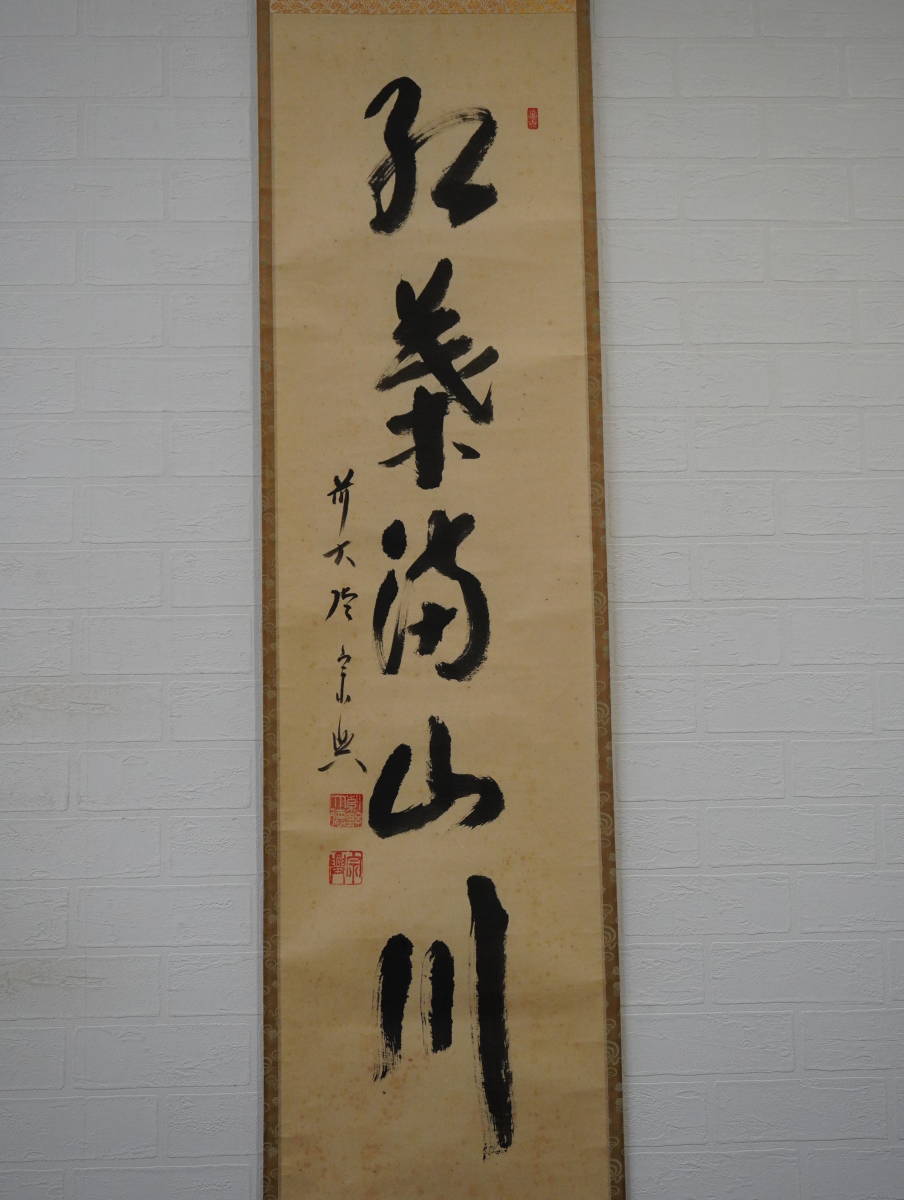 紅葉満山川
前大徳宗興